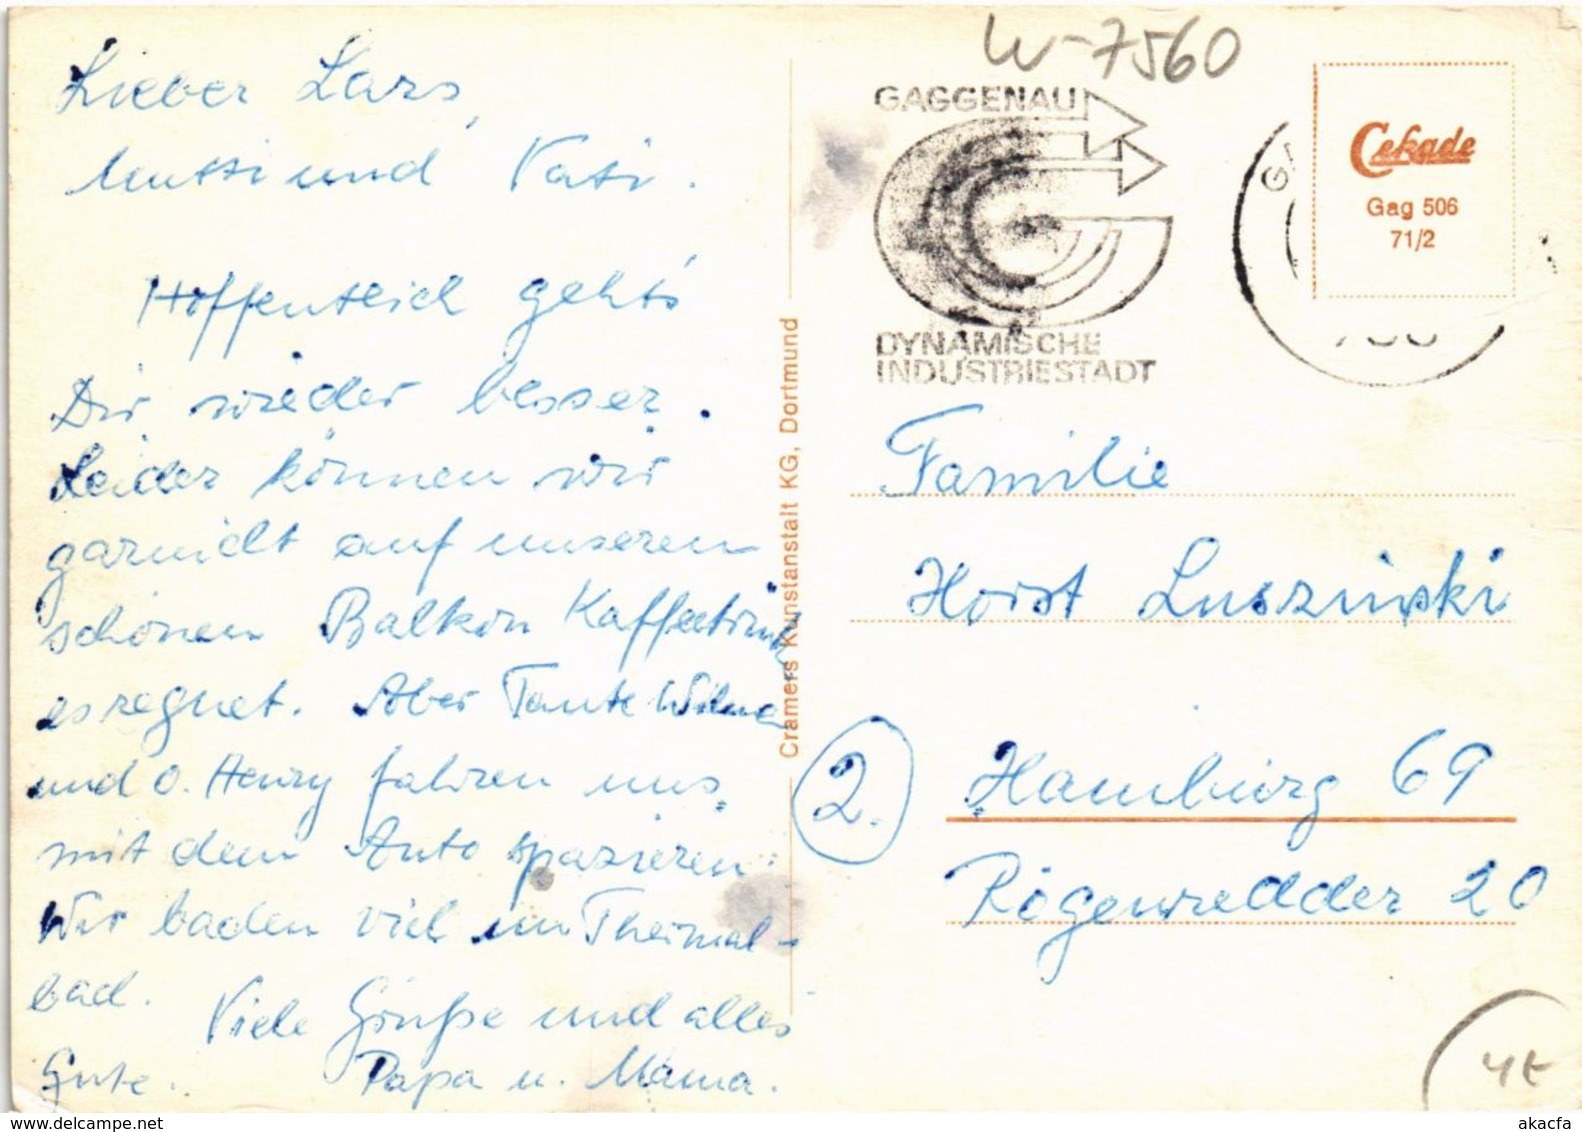 W-7560
Lieber Lars,
Mutti und Vati.
Hoffentlich geht's
Dir wieder besser.
Leider können wir
garnicht auf unseren
schönen Balkon Kaffeetrink
es regnet. Aber Tante Wilma
und O. Henry fahren uns
mit dem Auto spazieren.
Wir baden viel im Thermal-
bad.
Viele Grüße und alles
Gute. Papa u. Mama.
Cramers Kunstanstalt KG, Dortmund
GAGGENAU
DYNAMISCHE
INDUSTRIESTADT
Cekade
Gag 506
71/2
Familie
Horst Luszinski
2. Hamburg 69
Rögenwedder 20
4E
akacfa